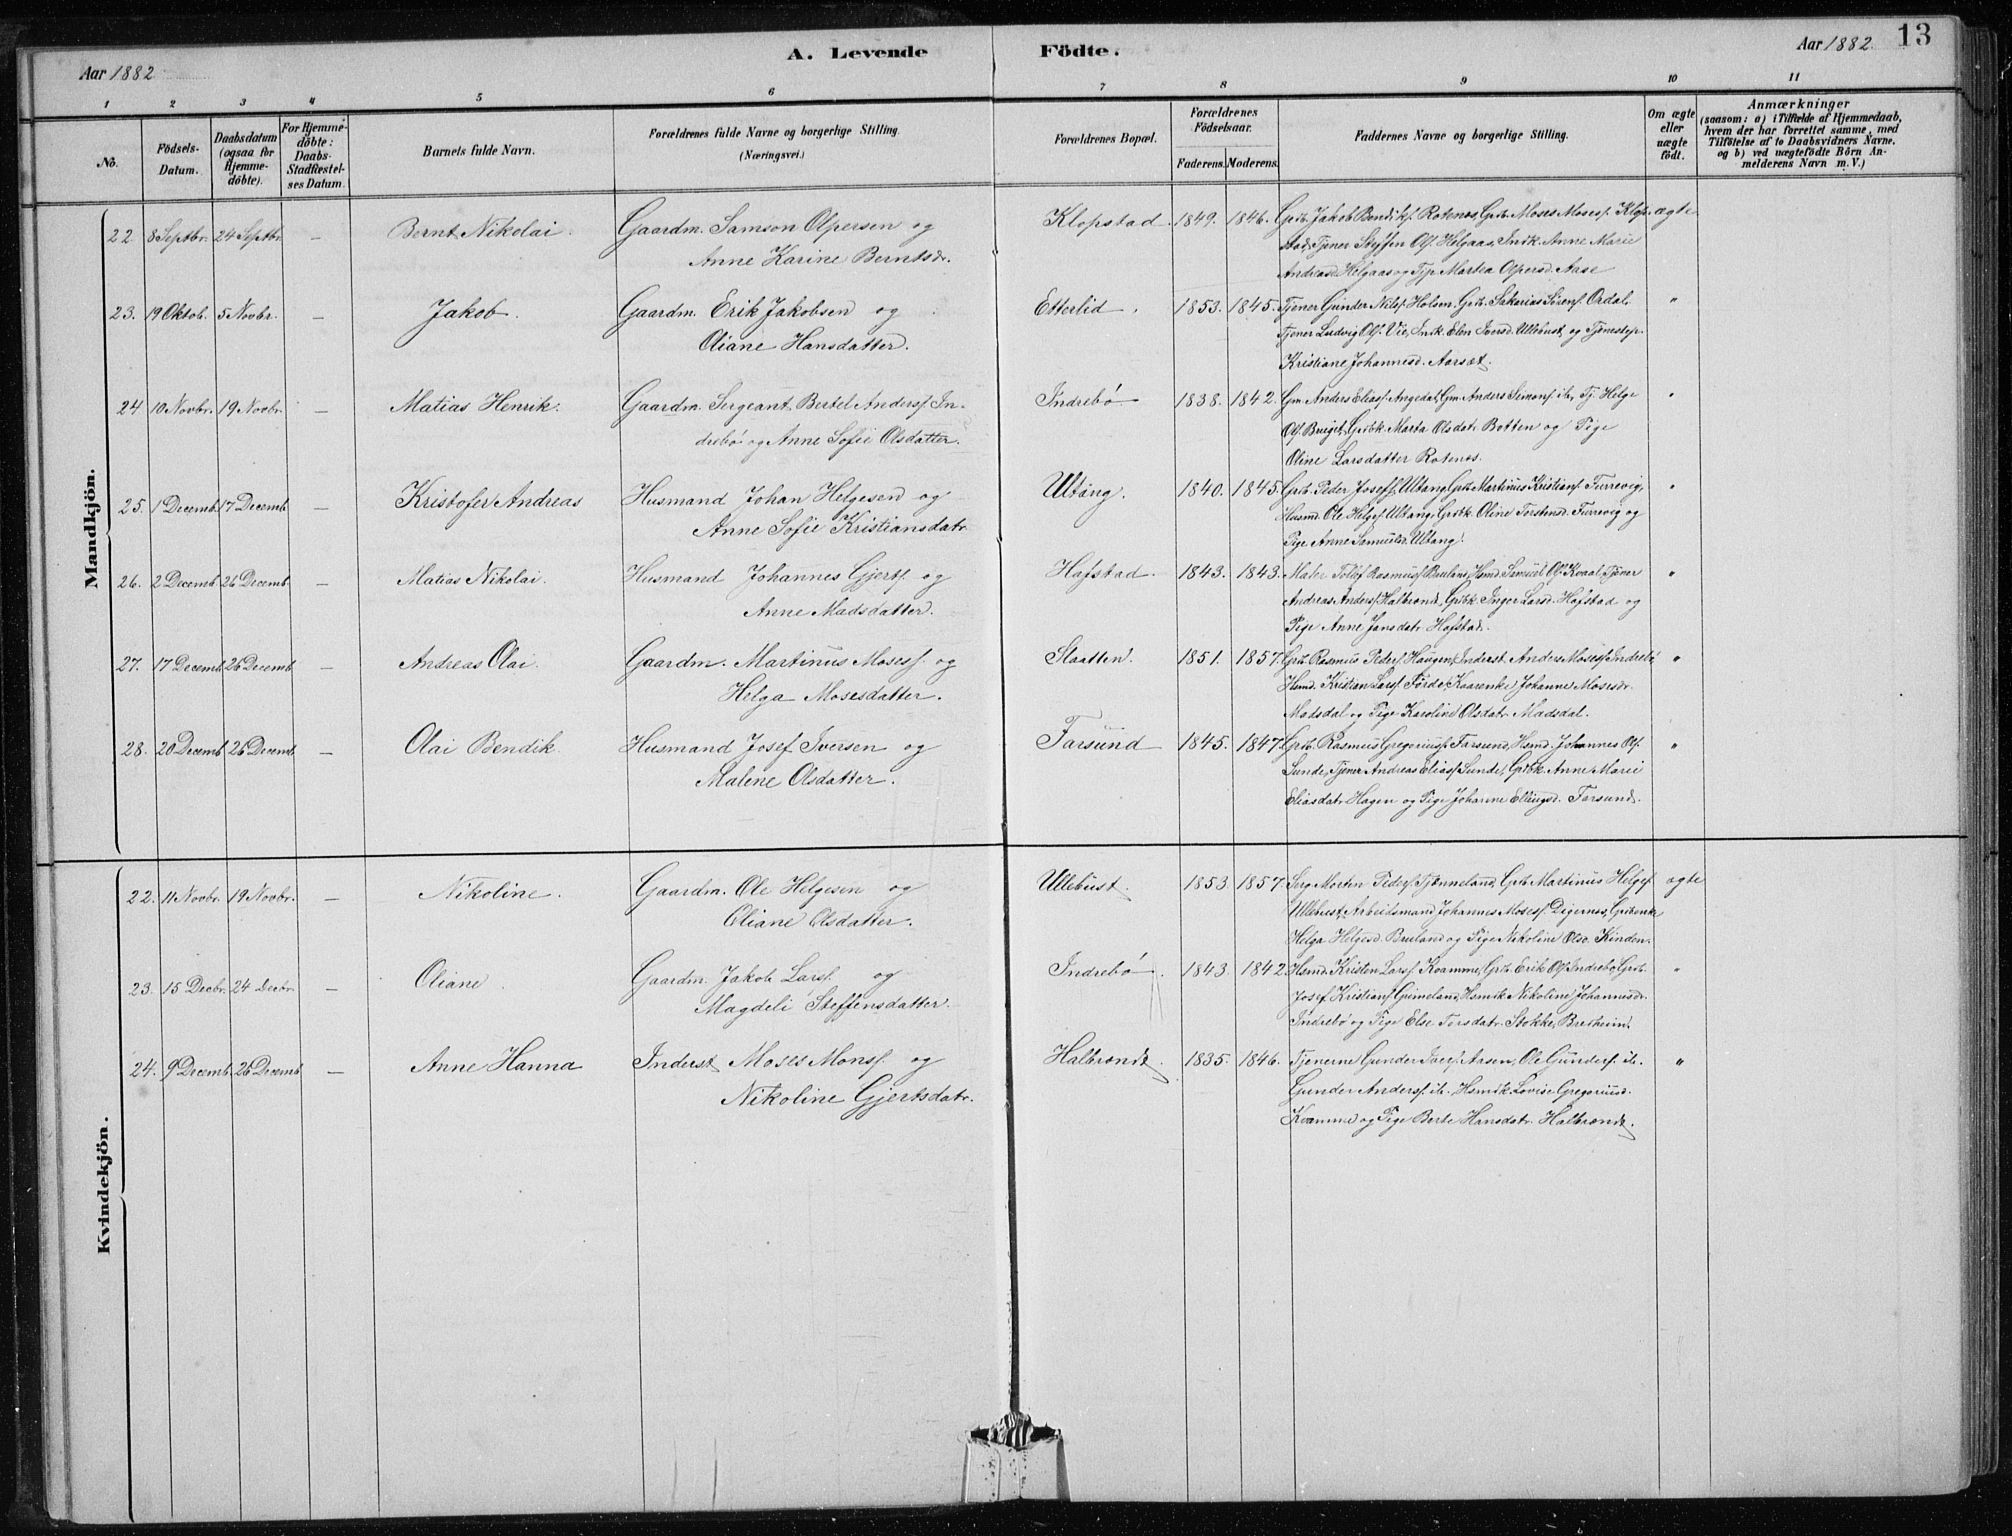 13
A. Levende Födte.
Aar 1882
Aar 1882
1 2 3 4 5 6 7 8 9 10 11
No.
Födsels-Datum.
Daabsdatum (ogsaa for Hjemme-döbte).
For Hjemme-döbte: Daabs-Stadfæstel-ses Datum.
Barnets fulde Navn.
Forældrenes fulde Navne og borgerlige Stilling.
(Næringsvei.)
Forældrenes Bopæl.
Forældrenes Födselsaar.
Faderens. Moderens.
Faddernes Navne og borgerlige Stilling.
Om ægte eller uægte födt.
Anmærkninger
(saasom: a) i Tilfælde af Hjemmedaab,
hvem der har forrettet samme, med
Tilföielse af to Daabsvidners Navne,
og b) ved uægtefödte Börn An-
melderens Navn m. V.)
Mandkjön.
22 8 Septbr. 24 Septbr. — Bernt Nikolai. Gaardm. Samson Olpersen og Klopstad 1849. 1846. Grdb. Jakob Bendiks. Rotenes, Grdb. Moses Moses. Klop- ægte
Anne Karine Berntsdr. stad, Tjener Steffen Ols. Helgaas, Indk. Anne Marie
Andreasd. Helgaas og Tjp. Martea Olpersd. Aase
23. 19 Oktob. 5 Novbr. — Jakob. Gaardm. Erik Jakobsen og Etterlid. 1853. 1845. Tjener Gunder Nils. Holsen, Grdb. Sakarias Sörens. Ordal, "
Oliane Hansdatter. Tjener Ludvig Ols. Vie, Indk. Elen Iversd. Ullebust og Tjenestep.
Kristiane Johannesd. Aarsæt.
24 10 Novbr. 19 Novbr. — Matias Henrik. Gaardm. Sergeant Bertel Anders. In- Indrebö 1838. 1842. Gm. Anders Elias. Angedal, Gm. Anders Simons. ib., Tj. Helge "
drebö og Anne Sofie Olsdatter. Ols. Bruget, Grdbk. Marta Olsdatr. Botten og Pige
Oline Larsdatter Rotenes.
25. 1 Decemb. 17 Decemb. — Kristofer Andreas Husmand Johan Helgesen og Ultang. 1840. 1845. Grdb. Peder Josefs. Ultang, Grdb. Martinus Kristians. Furevig, "
Anne Sofie Kristiansdatr. Husmd. Ole Helges. Ultang, Grdbk. Oline Torstensd. Furrevig og
Pige Anne Samuelsd. Ultang.
26. 2 Decemb. 26 Decemb. — Matias Nikolai. Husmand Johannes Gjerts. og Hafstad. 1843. 1843. Maler Tollef Rasmus. Bruland, Hsmd. Samuel Ols. Kvaal, Tjener "
Anne Madsdatter. Andreas Anders. Halbrend, Grdbk. Inger Larsd. Hafstad og
Pige Anne Jansdatr. Hafstad.
27. 17 Decemb. 26 Decemb. — Andreas Olai. Gaardm. Martinus Moses. og Slaatten. 1851. 1857. Grdb. Rasmus Peders. Haugen, Inderst Anders Moses. Indrebö "
Helga Mosesdatter. Hsmd. Kristian Lars. Förde, Kaarenke Johanne Mosesdr.
Madsdal og Pige Karoline Olsdatr. Madsdal.
28. 20 Decemb. 26 Decemb. — Olai Bendik Husmand Josef Iversen og Farsund 1845. 1847. Grdb. Rasmus Gregorius. Farsund, Hsmd. Johannes Ols. "
Malene Olsdatter. Sunde, Tjener Andreas Elias. Sunde, Grdbk. Anne Marie
Eliasdatr. Hagen og Pige Johanne Ellingsd. Farsund.
Kvindekjön.
22. 11 Novbr. 19 Novbr. — Nikoline. Gaardm. Ole Helgesen og Ullebust. 1853. 1857. Serg. Morten Peders. Tjønneland, Grdb. Martinus Helges. ægte
Oliane Olsdatter. Ullebust, Arbeidsmand Johannes Moses. Digernes, Grdenke
Helga Helgesd. Bruland og Pige Nikoline Olsd. Kinden.
23. 15 Decbr. 24 Decbr. — Oliane. Gaardm. Jakob Lars. og Indrebö. 1843. 1842. Hsmd. Kristen Lars. Kvamme, Grdb. Erik Ols. Indrebö, Grdb. "
Magdeli Steffensdatter. Josef Kristians. Grimeland, Hsmdk. Nikoline Johannesdr.
Indrebö og Pige Else Torsdatr. Stokke, Bredheim.
24. 9 Decemb. 26 Decemb. — Anne Hanna Inderst Moses Mons. og Halbrendt. 1835. 1846. Tjenerne Gunder Ivers. Arsen, Ole Gunders. ib. "
Nikoline Gjertsdatr. Gunder Anders. ib. Hsmdk. Lovise Gregoriusd.
Kvamme og Pige Berte Hansdatr. Halbrendt.